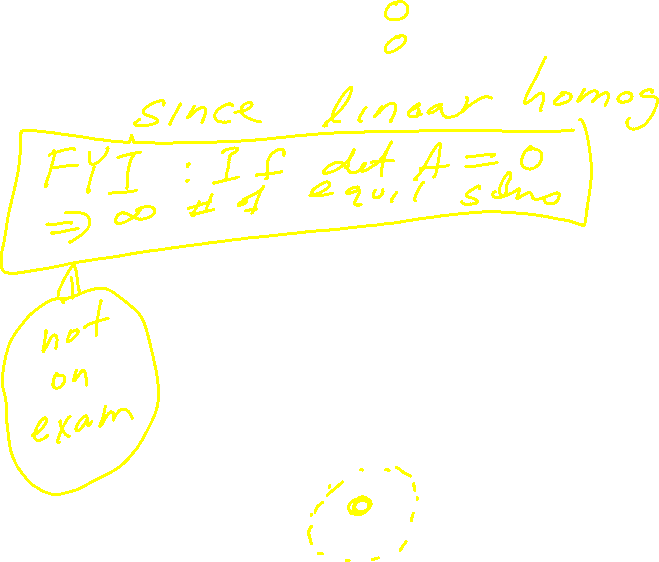 0
0
since linear homog
FYI : If det A = 0
⇒ ∞ # of equil solns
not
on
exam